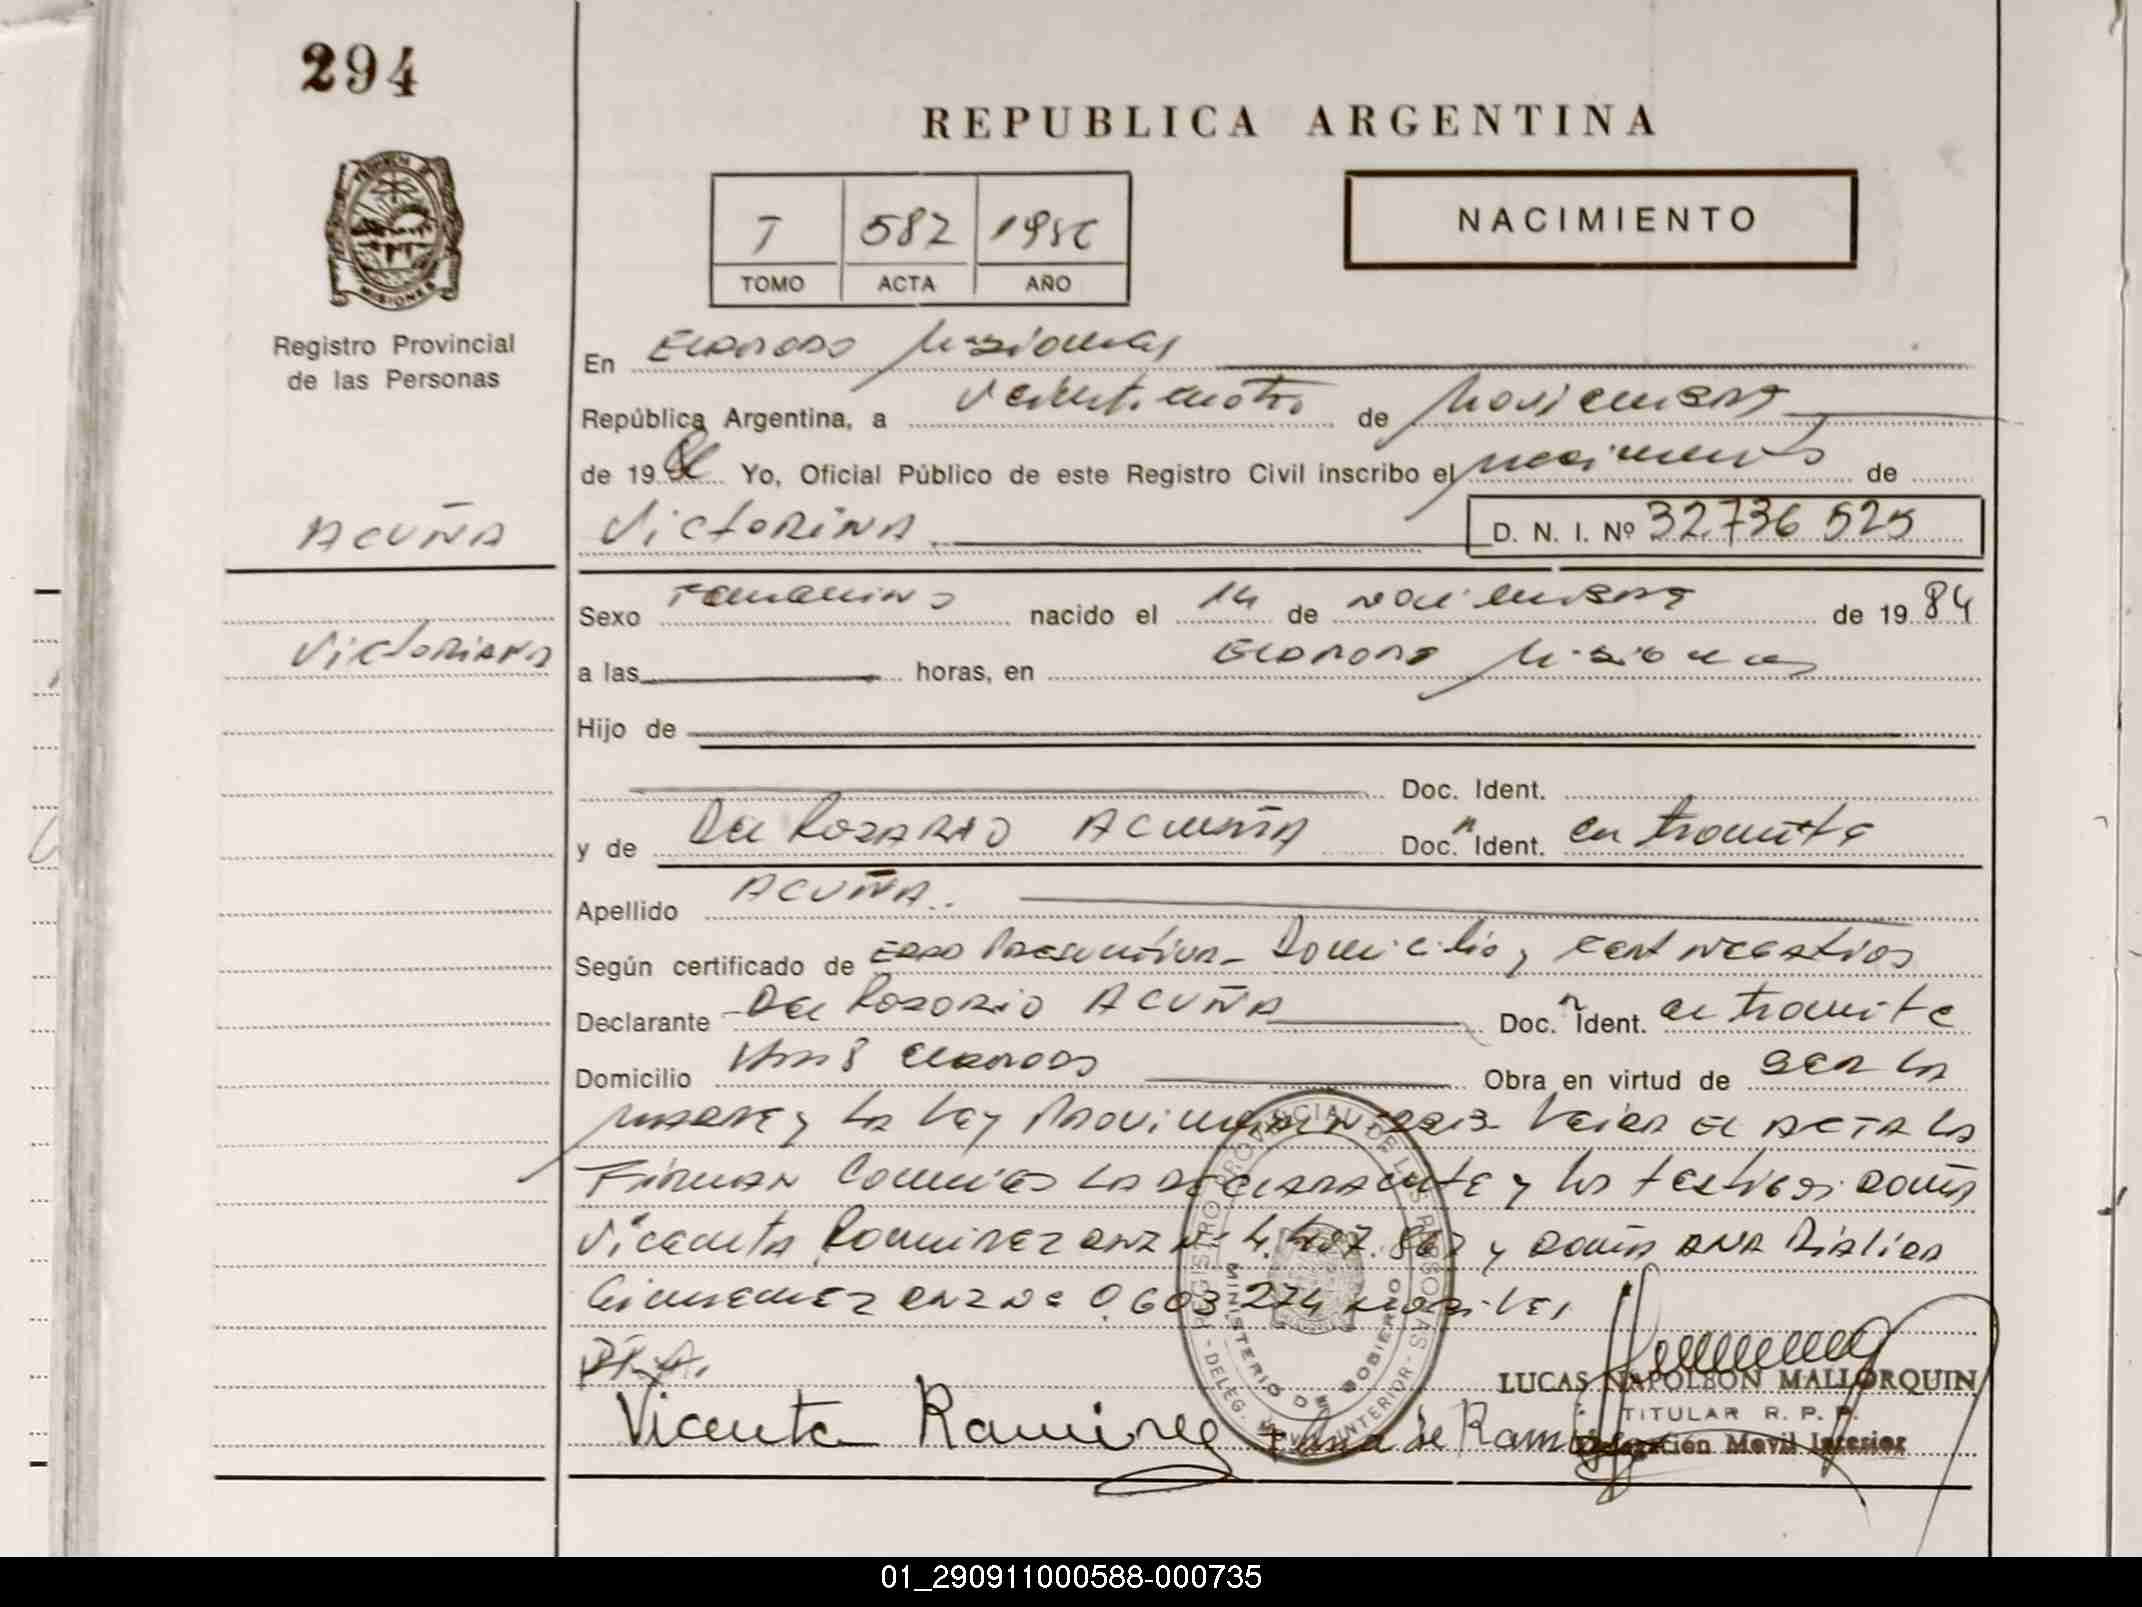 294
REPUBLICA ARGENTINA
NACIMIENTO
T 582 1986
TOMO ACTA AÑO
PROVINCIA
MISIONES
Registro Provincial
de las Personas
En Eldorado Misiones
República Argentina, a veinticuatro de Noviembre
de 1986 Yo, Oficial Público de este Registro Civil inscribo el nacimiento de
ACUÑA
VictoRiNA
D. N. I. Nº 32.736.525
Sexo Femenino nacido el 14 de noviembre de 1984
VictoRiANA
a las horas, en Eldorado Misiones
Hijo de
Doc. Ident.
y de Del RosaRio ACUÑA Doc. Ident. en tramite
Apellido ACUÑA
Según certificado de Edad Presuntiva - Domicilio y cert negativos
Declarante Del Rosario ACUÑA Doc. Ident. en tramite
Domicilio Km 8 Eldorado Obra en virtud de ser la
madre y la ley Provincial Nº Leida el ACTA la
Firman Conmigo la declarante y los testigos doña
Vicenta Ramirez DNI Nº 4. y doña ANA
Gimenez DNI Nº 274
REGISTRO PROVINCIAL DE LAS PERSONAS
MINISTERIO DE GOBIERNO
- DELEG. MOVIL INTERIOR -
LUCAS NAPOLEON MALLORQUIN
TITULAR R. P. P.
Delegación Movil Interior
Vicenta Ramirez Ana de Ramirez
01_290911000588-000735